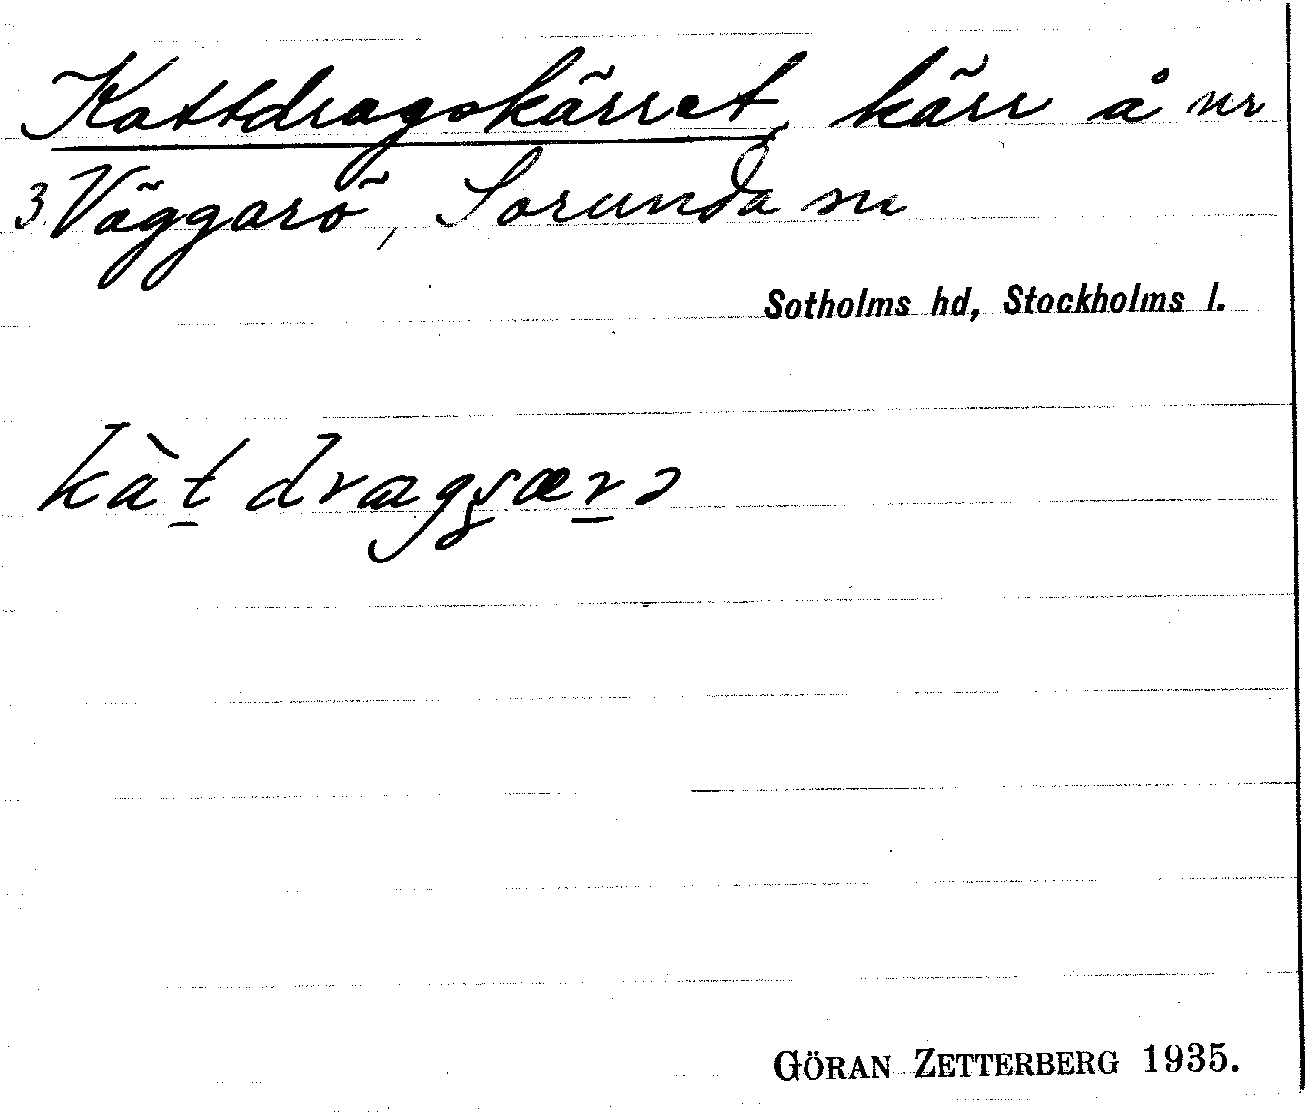 Kattdragskärret, kärr å nr
3 Väggarö, Sorunda sn
Sotholms hd, Stockholms l.
GÖRAN ZETTERBERG 1935.